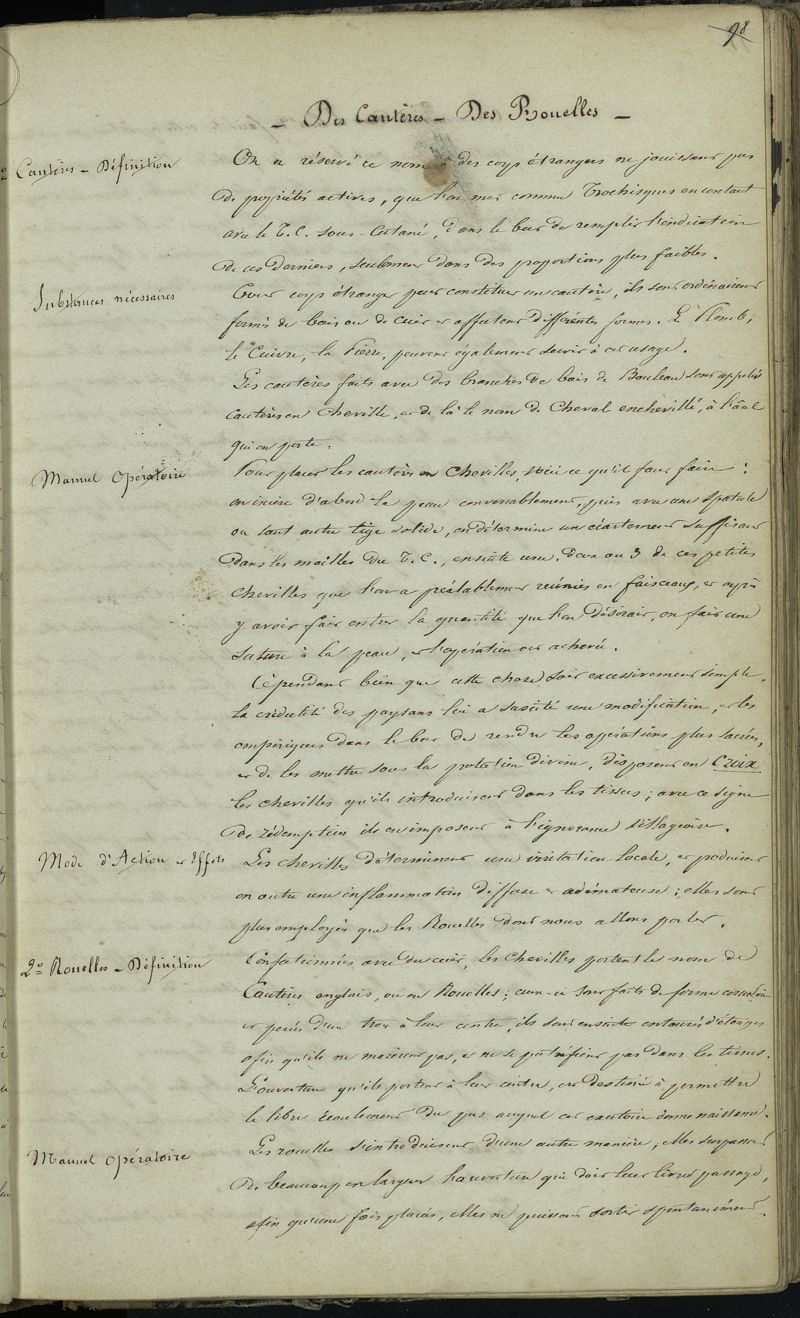 98
– Des Cautères – Des Rouelles –
1º Cautères – Définition
On a réservé ce nom à des corps étrangers ne jouissant pas
de propriétés actives, que l'on met comme Trochisques en contact
avec le T. C. sous-cutané, dans le but de remplir l'indication
de ces derniers, seulement dans des proportions plus faibles.
Substances nécessaires
Tout corps étranger peut constituer un cautère, ils sont ordinairement
formés de bois ou de cuir et affectent différentes formes. Le Plomb,
le Cuivre, la Pierre, peuvent également servir à cet usage.
Les cautères faits avec des branches de bois de Bouleau sont appelés
cautères en cheville, et de là le nom de Cheval enchevillé, à l'anl
qui en porte.
Manuel Opératoire
Pour placer les cautères en Chevilles, voici ce qu'il faut faire :
on incise d'abord la peau convenablement, puis avec une spatule
ou tout autre tige solide, on détermine un écartement suffisant
dans les mailles du T. C., ensuite une, deux ou 3 de ces petites
chevilles que l'on a préalablement réunies en faisceaux, et après
y avoir fait entrer la quantité que l'on désirait, on fait une
suture à la peau, et l'opération est achevée.
Cependant bien que cette chose soit excessivement simple,
la crédulité des paysans lui a suscité une modification, et les
empiriques dans le but de rendre les opérations plus sacrées,
et de les mettre sous la protection divine, disposent en Croix
les chevilles qu'ils introduisent dans les tissus ; avec ce signe
de rédemption ils en imposent à l'ignorance villageoise.
Mode d'Action et Effets
Les chevilles déterminent une irritation locale, et produisent
en outre une inflammation diffuse et œdémateuse ; elles sont
plus employées que les Rouelles dont nous allons parler.
2º Rouelles – Définition
Confectionnées avec du cuir, les Chevilles portent le nom de
Cautères anglais, ou en Rouelles ; ceux-ci sont faits de forme circulaire
et percés d'un trou à leur centre, ils sont ensuite entourés d'étoupes
afin qu'ils ne macèrent pas, et ne se putréfient pas dans les tissus.
L'ouverture qu'ils portent à leur centre, est destinée à permettre
le libre écoulement du pus auquel cet exutoire donne naissance.
Manuel Opératoire
Les rouelles s'introduisent d'une autre manière, elles surpassent
de beaucoup en largeur l'ouverture qui doit leur livrer passage,
afin qu'une fois placées, elles ne puissent sortir spontanément.